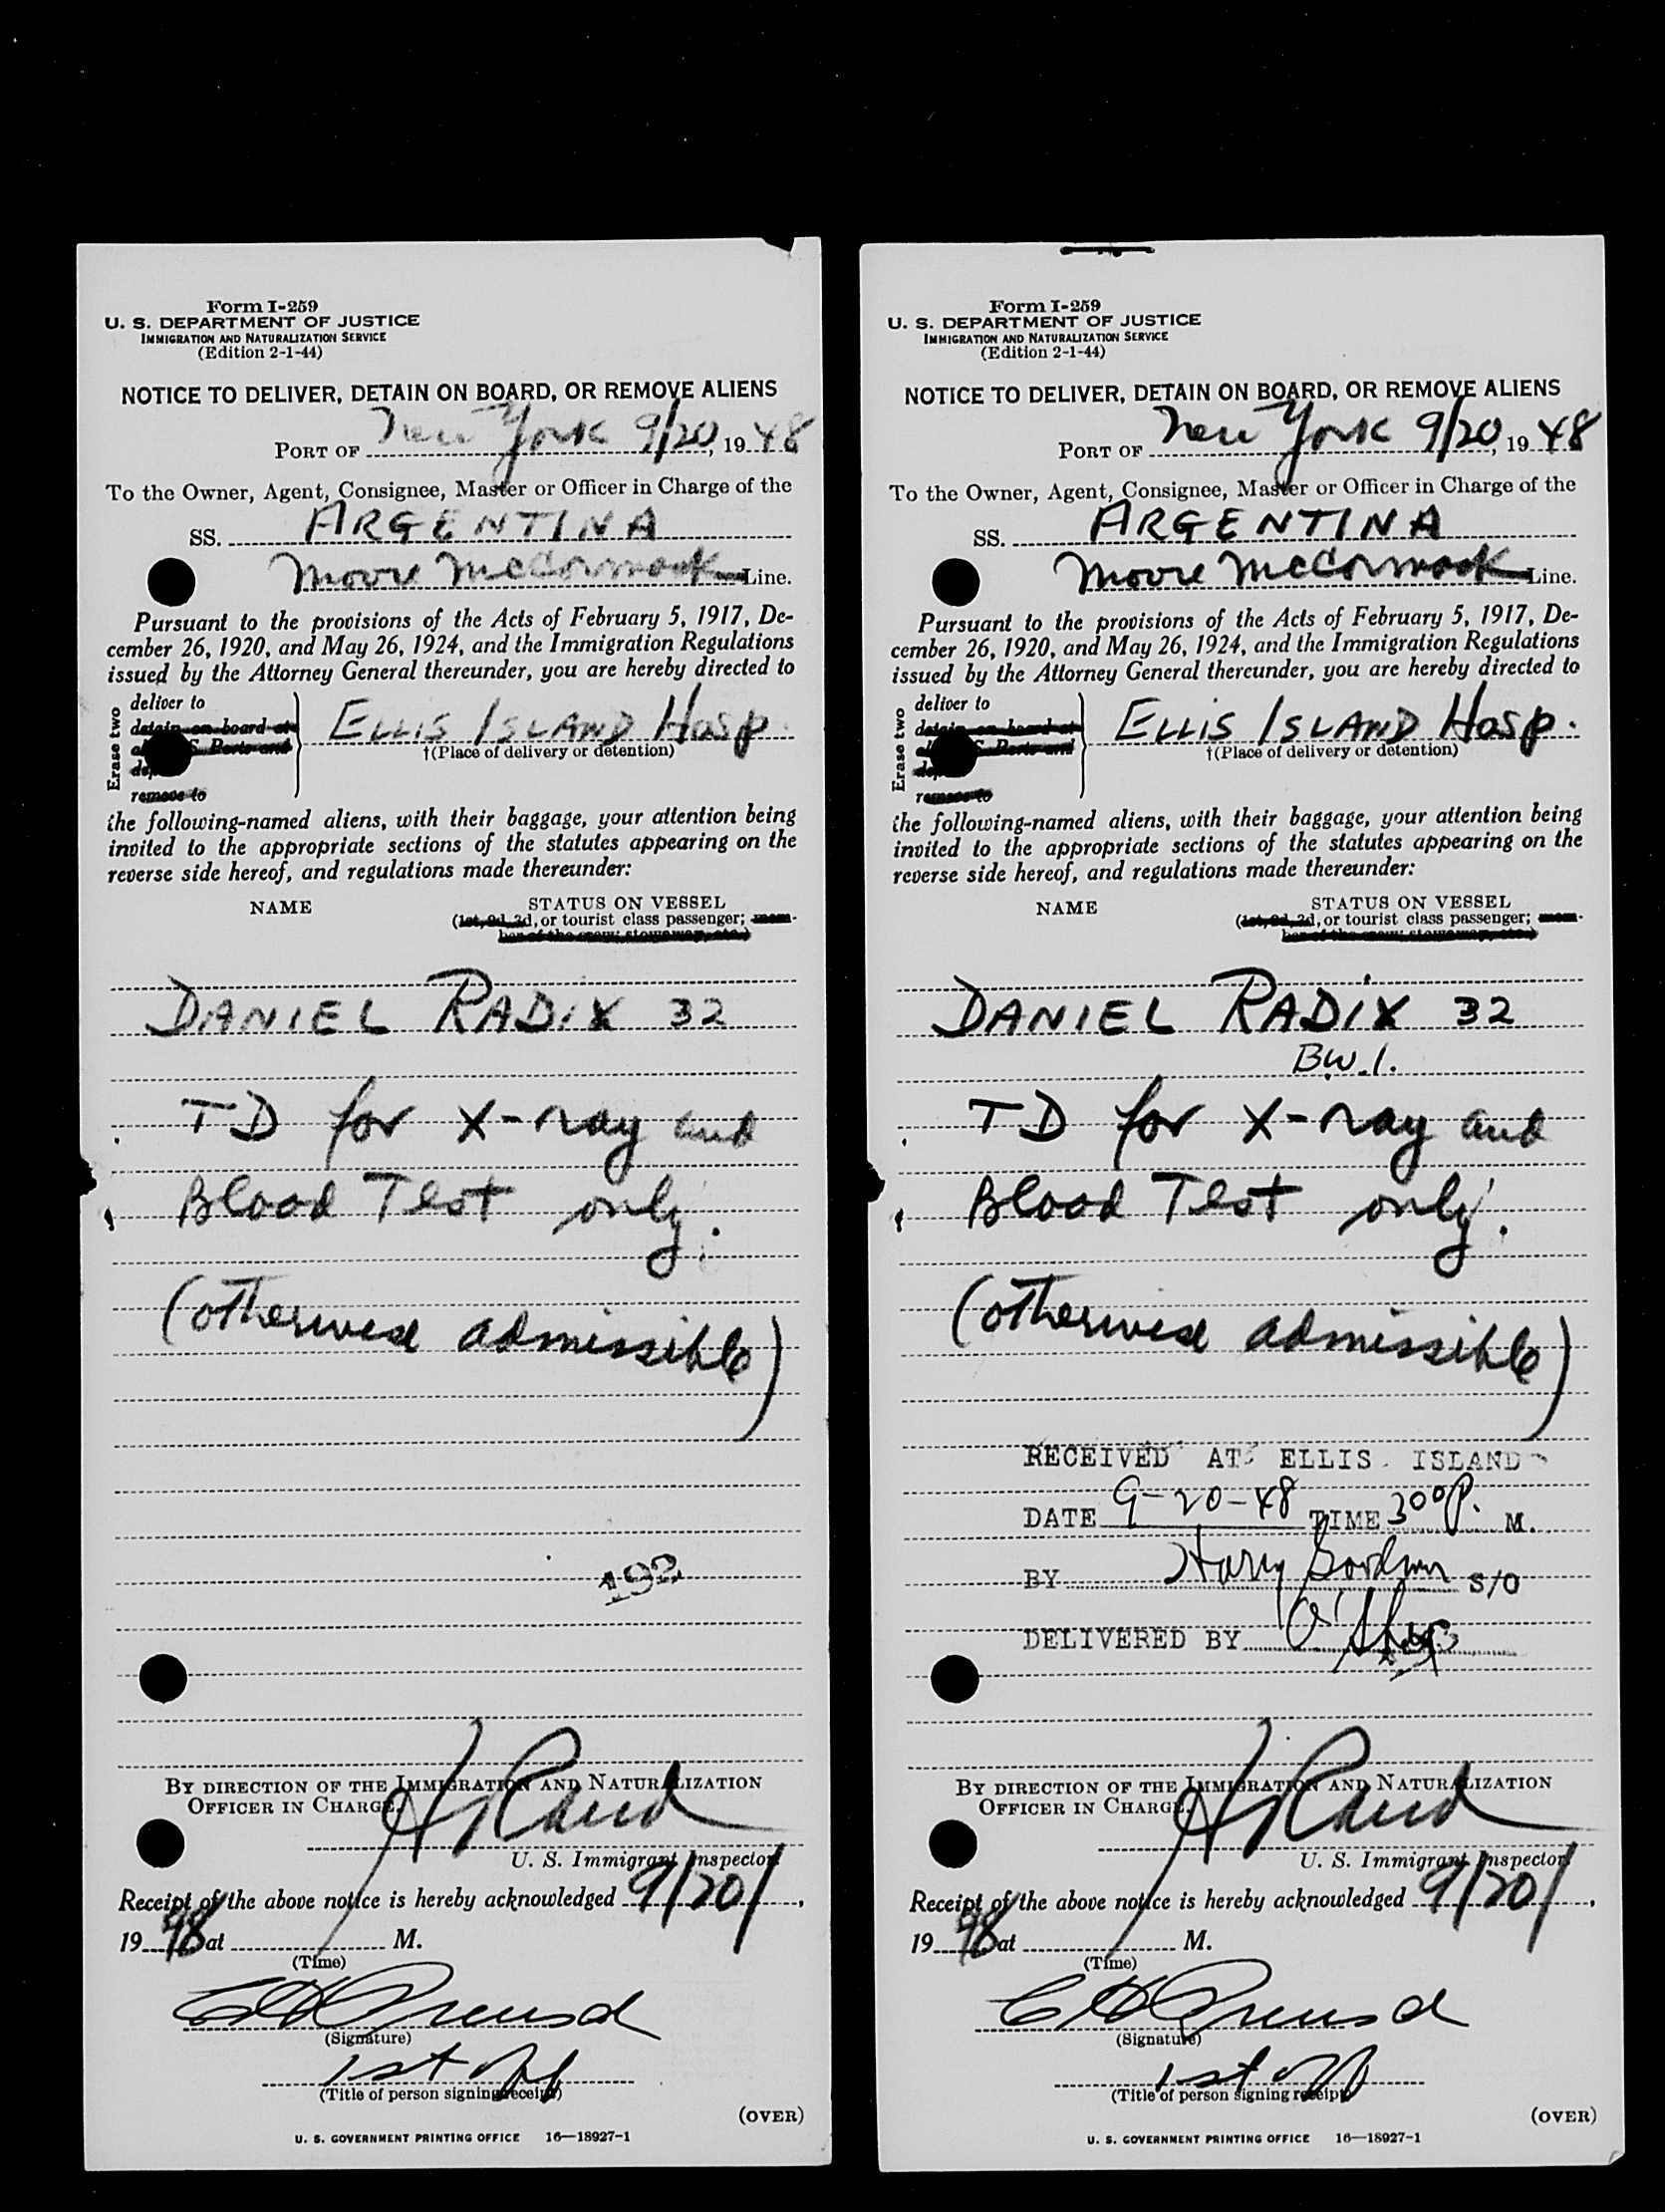 Form I-259
U. S. DEPARTMENT OF JUSTICE
IMMIGRATION AND NATURALIZATION SERVICE
(Edition 2-1-44)
NOTICE TO DELIVER, DETAIN ON BOARD, OR REMOVE ALIENS
PORT OF New York 9/20, 1948
To the Owner, Agent, Consignee, Master or Officer in Charge of the
SS. ARGENTINA
Moore McCormack Line.
Pursuant to the provisions of the Acts of February 5, 1917, De-
cember 26, 1920, and May 26, 1924, and the Immigration Regulations
issued by the Attorney General thereunder, you are hereby directed to
Erase two
deliver to
detain on board at
S. Ports and
remove to
ELLIS ISLAND Hosp.
†(Place of delivery or detention)
the following-named aliens, with their baggage, your attention being
invited to the appropriate sections of the statutes appearing on the
reverse side hereof, and regulations made thereunder:
NAME STATUS ON VESSEL
(1st, 2d, 3d, or tourist class passenger; mem-
ber of the crew; stowaway, etc.)
DANIEL RADIX 32
TD for X-ray and
Blood Test only.
(otherwise admissible)
192
BY DIRECTION OF THE IMMIGRATION AND NATURALIZATION
OFFICER IN CHARGE.
U. S. Immigrant Inspector.
Receipt of the above notice is hereby acknowledged 9/20/,
1948 at M.
(Time)
(Signature)
1st Off
(Title of person signing receipt)
(OVER)
U. S. GOVERNMENT PRINTING OFFICE 16—18927-1
Form I-259
U. S. DEPARTMENT OF JUSTICE
IMMIGRATION AND NATURALIZATION SERVICE
(Edition 2-1-44)
NOTICE TO DELIVER, DETAIN ON BOARD, OR REMOVE ALIENS
PORT OF New York 9/20, 1948
To the Owner, Agent, Consignee, Master or Officer in Charge of the
SS. ARGENTINA
Moore McCormack Line.
Pursuant to the provisions of the Acts of February 5, 1917, De-
cember 26, 1920, and May 26, 1924, and the Immigration Regulations
issued by the Attorney General thereunder, you are hereby directed to
Erase two
deliver to
detain on board at
S. Ports and
remove to
ELLIS ISLAND Hosp.
†(Place of delivery or detention)
the following-named aliens, with their baggage, your attention being
invited to the appropriate sections of the statutes appearing on the
reverse side hereof, and regulations made thereunder:
NAME STATUS ON VESSEL
(1st, 2d, 3d, or tourist class passenger; mem-
ber of the crew; stowaway, etc.)
DANIEL RADIX 32
B.W.I.
TD for X-ray and
Blood Test only.
(otherwise admissible)
RECEIVED AT ELLIS ISLAND
DATE 9-20-48 TIME 300 P. M.
BY Harry S/O
DELIVERED BY
BY DIRECTION OF THE IMMIGRATION AND NATURALIZATION
OFFICER IN CHARGE.
U. S. Immigrant Inspector.
Receipt of the above notice is hereby acknowledged 9/20/,
1948 at M.
(Time)
(Signature)
1st Off
(Title of person signing receipt)
(OVER)
U. S. GOVERNMENT PRINTING OFFICE 16—18927-1